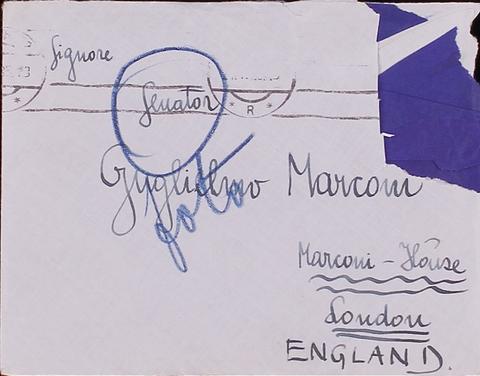 Signore
Senator
Guglielmo Marconi
Marconi-House
London
ENGLAND.
* R *